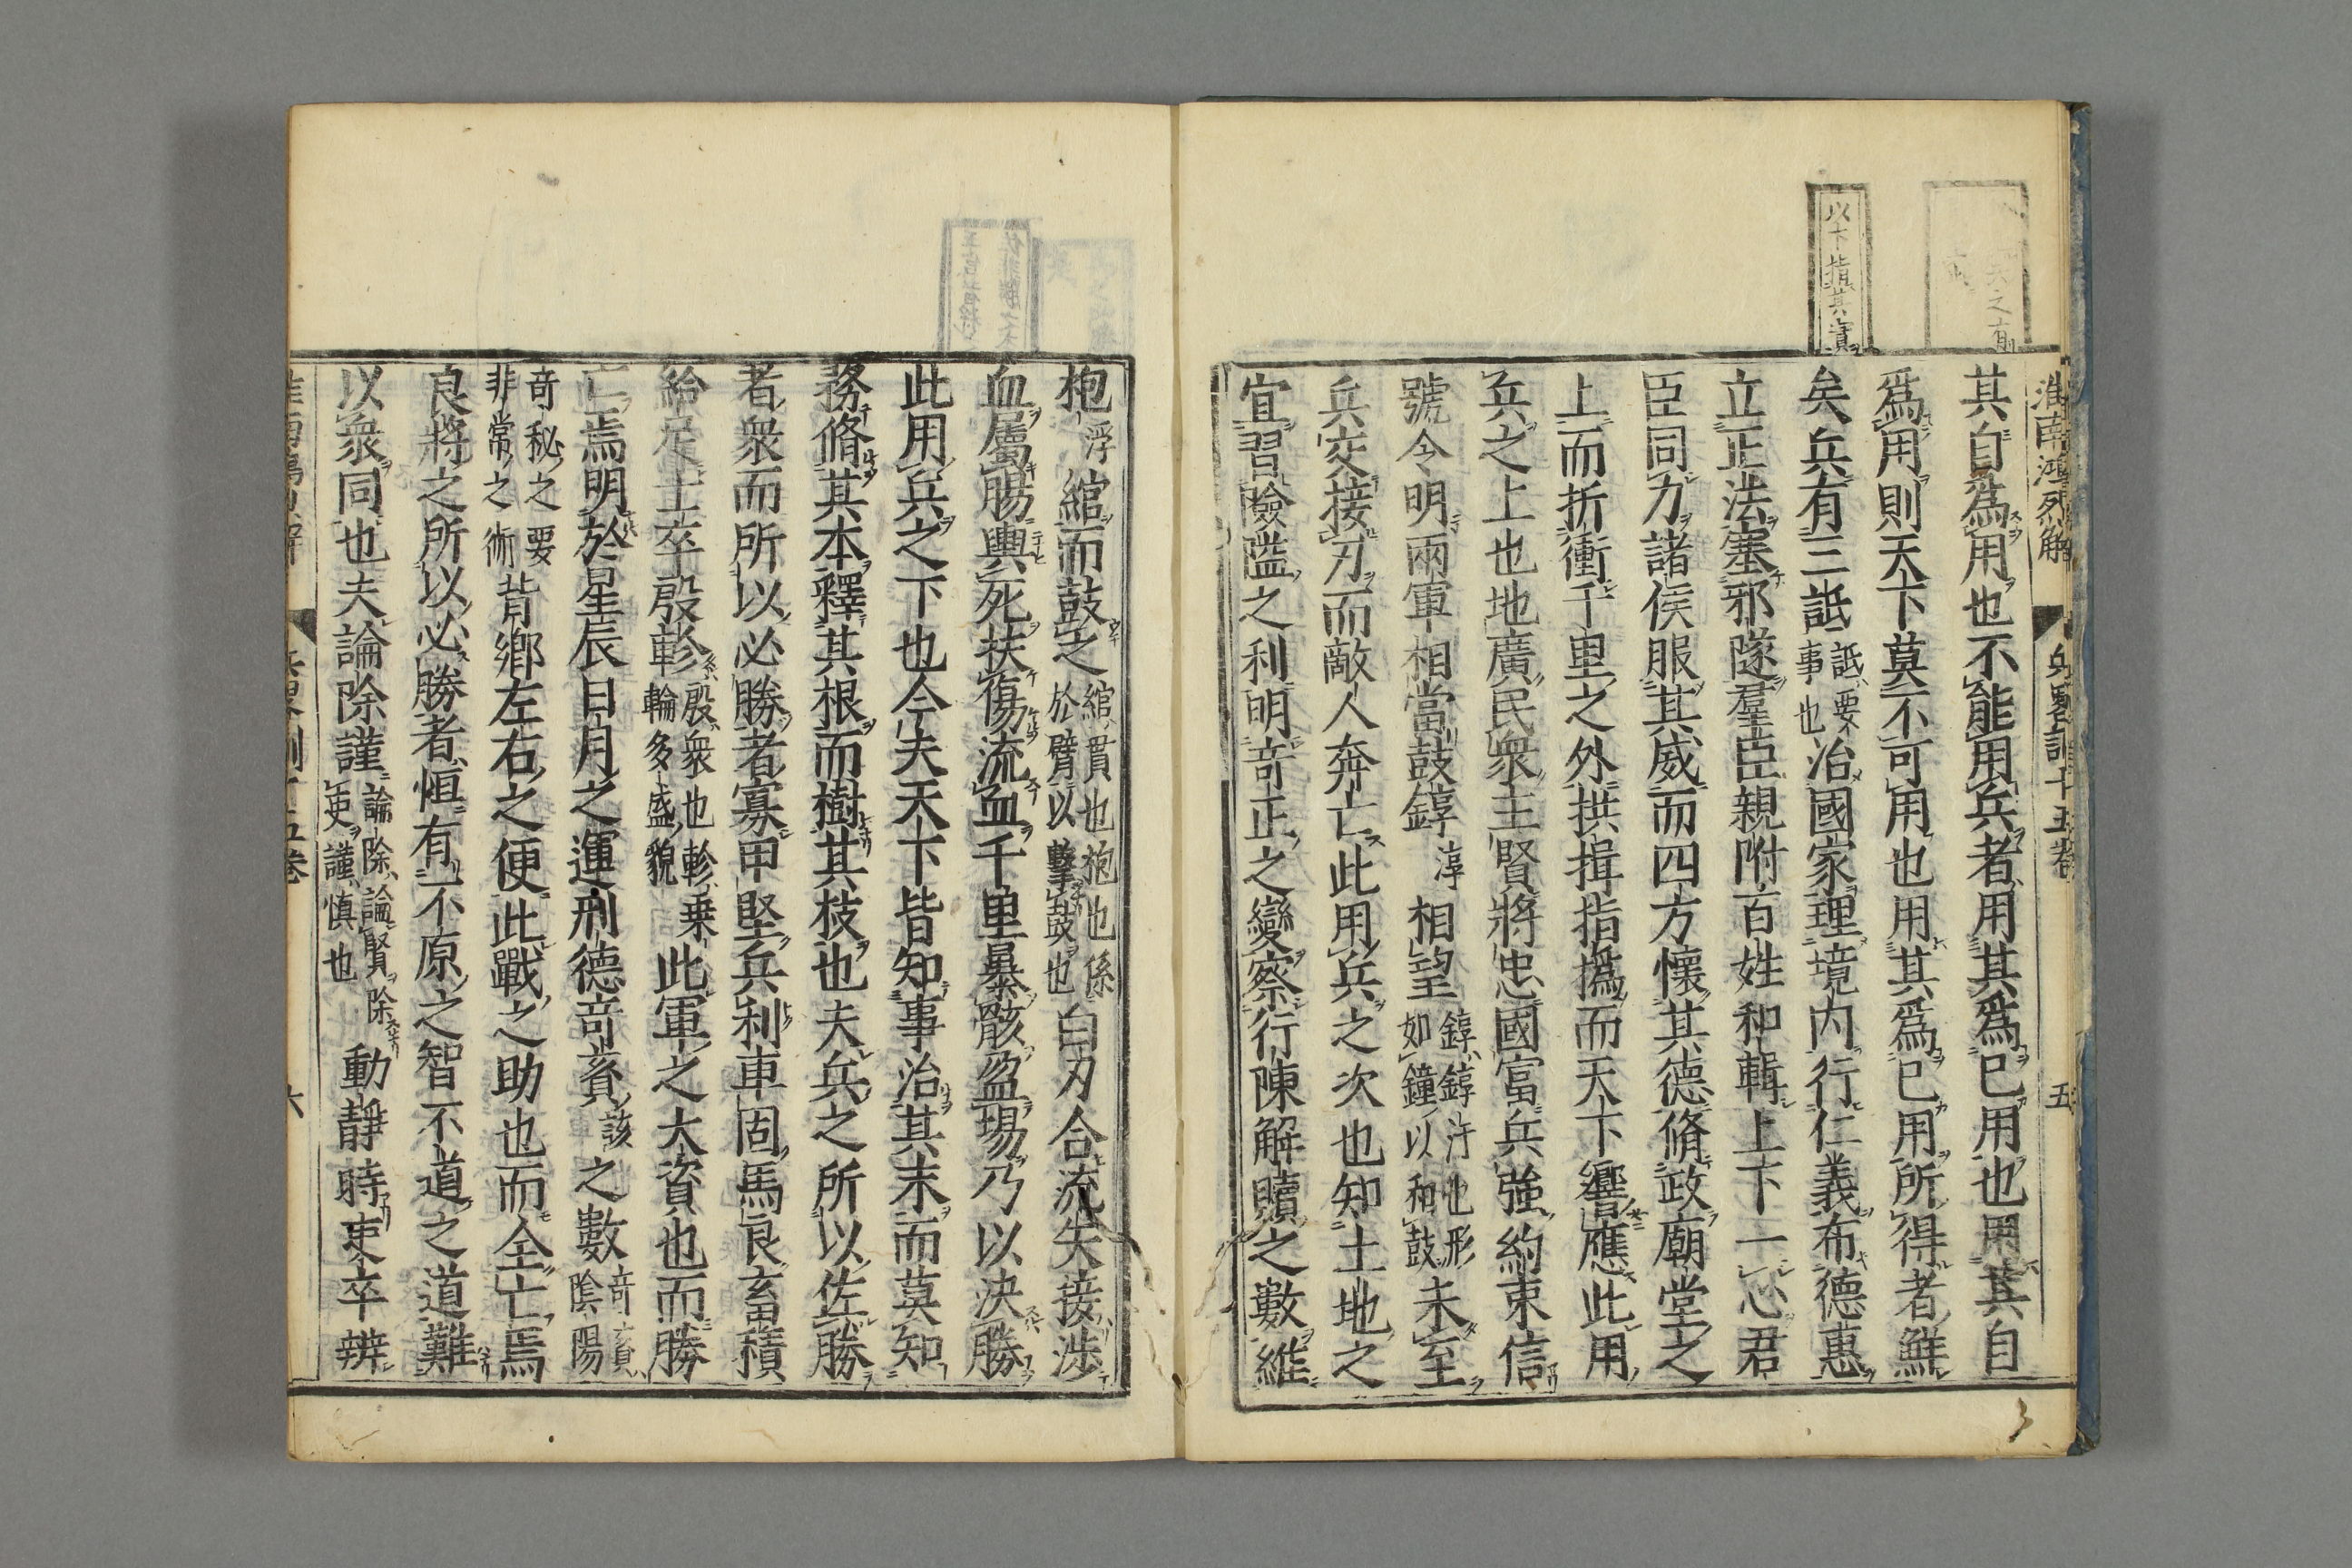 淮南鴻烈解 兵畧訓十五卷 五
以下指其實
其自爲用也不能用兵者用其爲已用也用其自
爲用則天下莫不可用也用其爲已用所得者鮮
矣兵有三詆詆要事也治國家理境内行仁義布德惠
立正法塞邪隧羣臣親附百姓和輯上下一心君
臣同力諸侯服其威而四方懷其德脩政廟堂之
上而折衝千里之外拱揖指撝而天下響應此用
兵之上也地廣民衆主賢將忠國富兵強約束信
號令明兩軍相當鼓錞淳相望錞錞于也形如鐘以和鼓未至
兵交接刃而敵人奔亡此用兵之次也知土地之
宜習險隘之利明竒正之變察行陳解贖之數維
枹浮綰而鼓之綰貫也枹也係於臂以擊鼓也白刃合流矢接涉
血屬腸輿死扶傷流血千里暴骸盈場乃以決勝
此用兵之下也今夫天下皆知事治其末而莫知
務脩其本釋其根而樹其枝也夫兵之所以佐勝
者衆而所以必勝者寡甲堅兵利車固馬良畜積
給足士卒殷軫殷衆也軫乗輪多盛貌此軍之大資也而勝
亡焉明於星辰日月之運刑德竒賌該之數竒賌陰陽
竒秘之要非常之術背鄉左右之便此戰之助也而全亡焉
良將之所以必勝者恒有不原之智不道之道難
以衆同也夫論除謹論除論賢除吏謹慎也動靜時吏卒辨
六